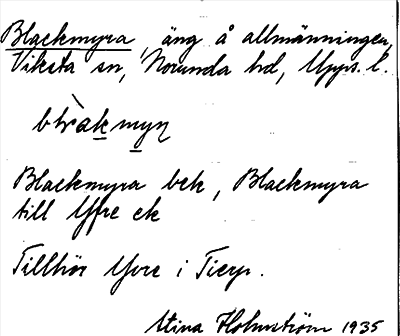 Blackmyra, äng å allmänningen,
Viksta sn, Norunda hd, Upps. l.
Blackmyra bek, Blackmyra
till Yfre ek
Tillhör Yvre i Tierp.
Stina Holmström 1935